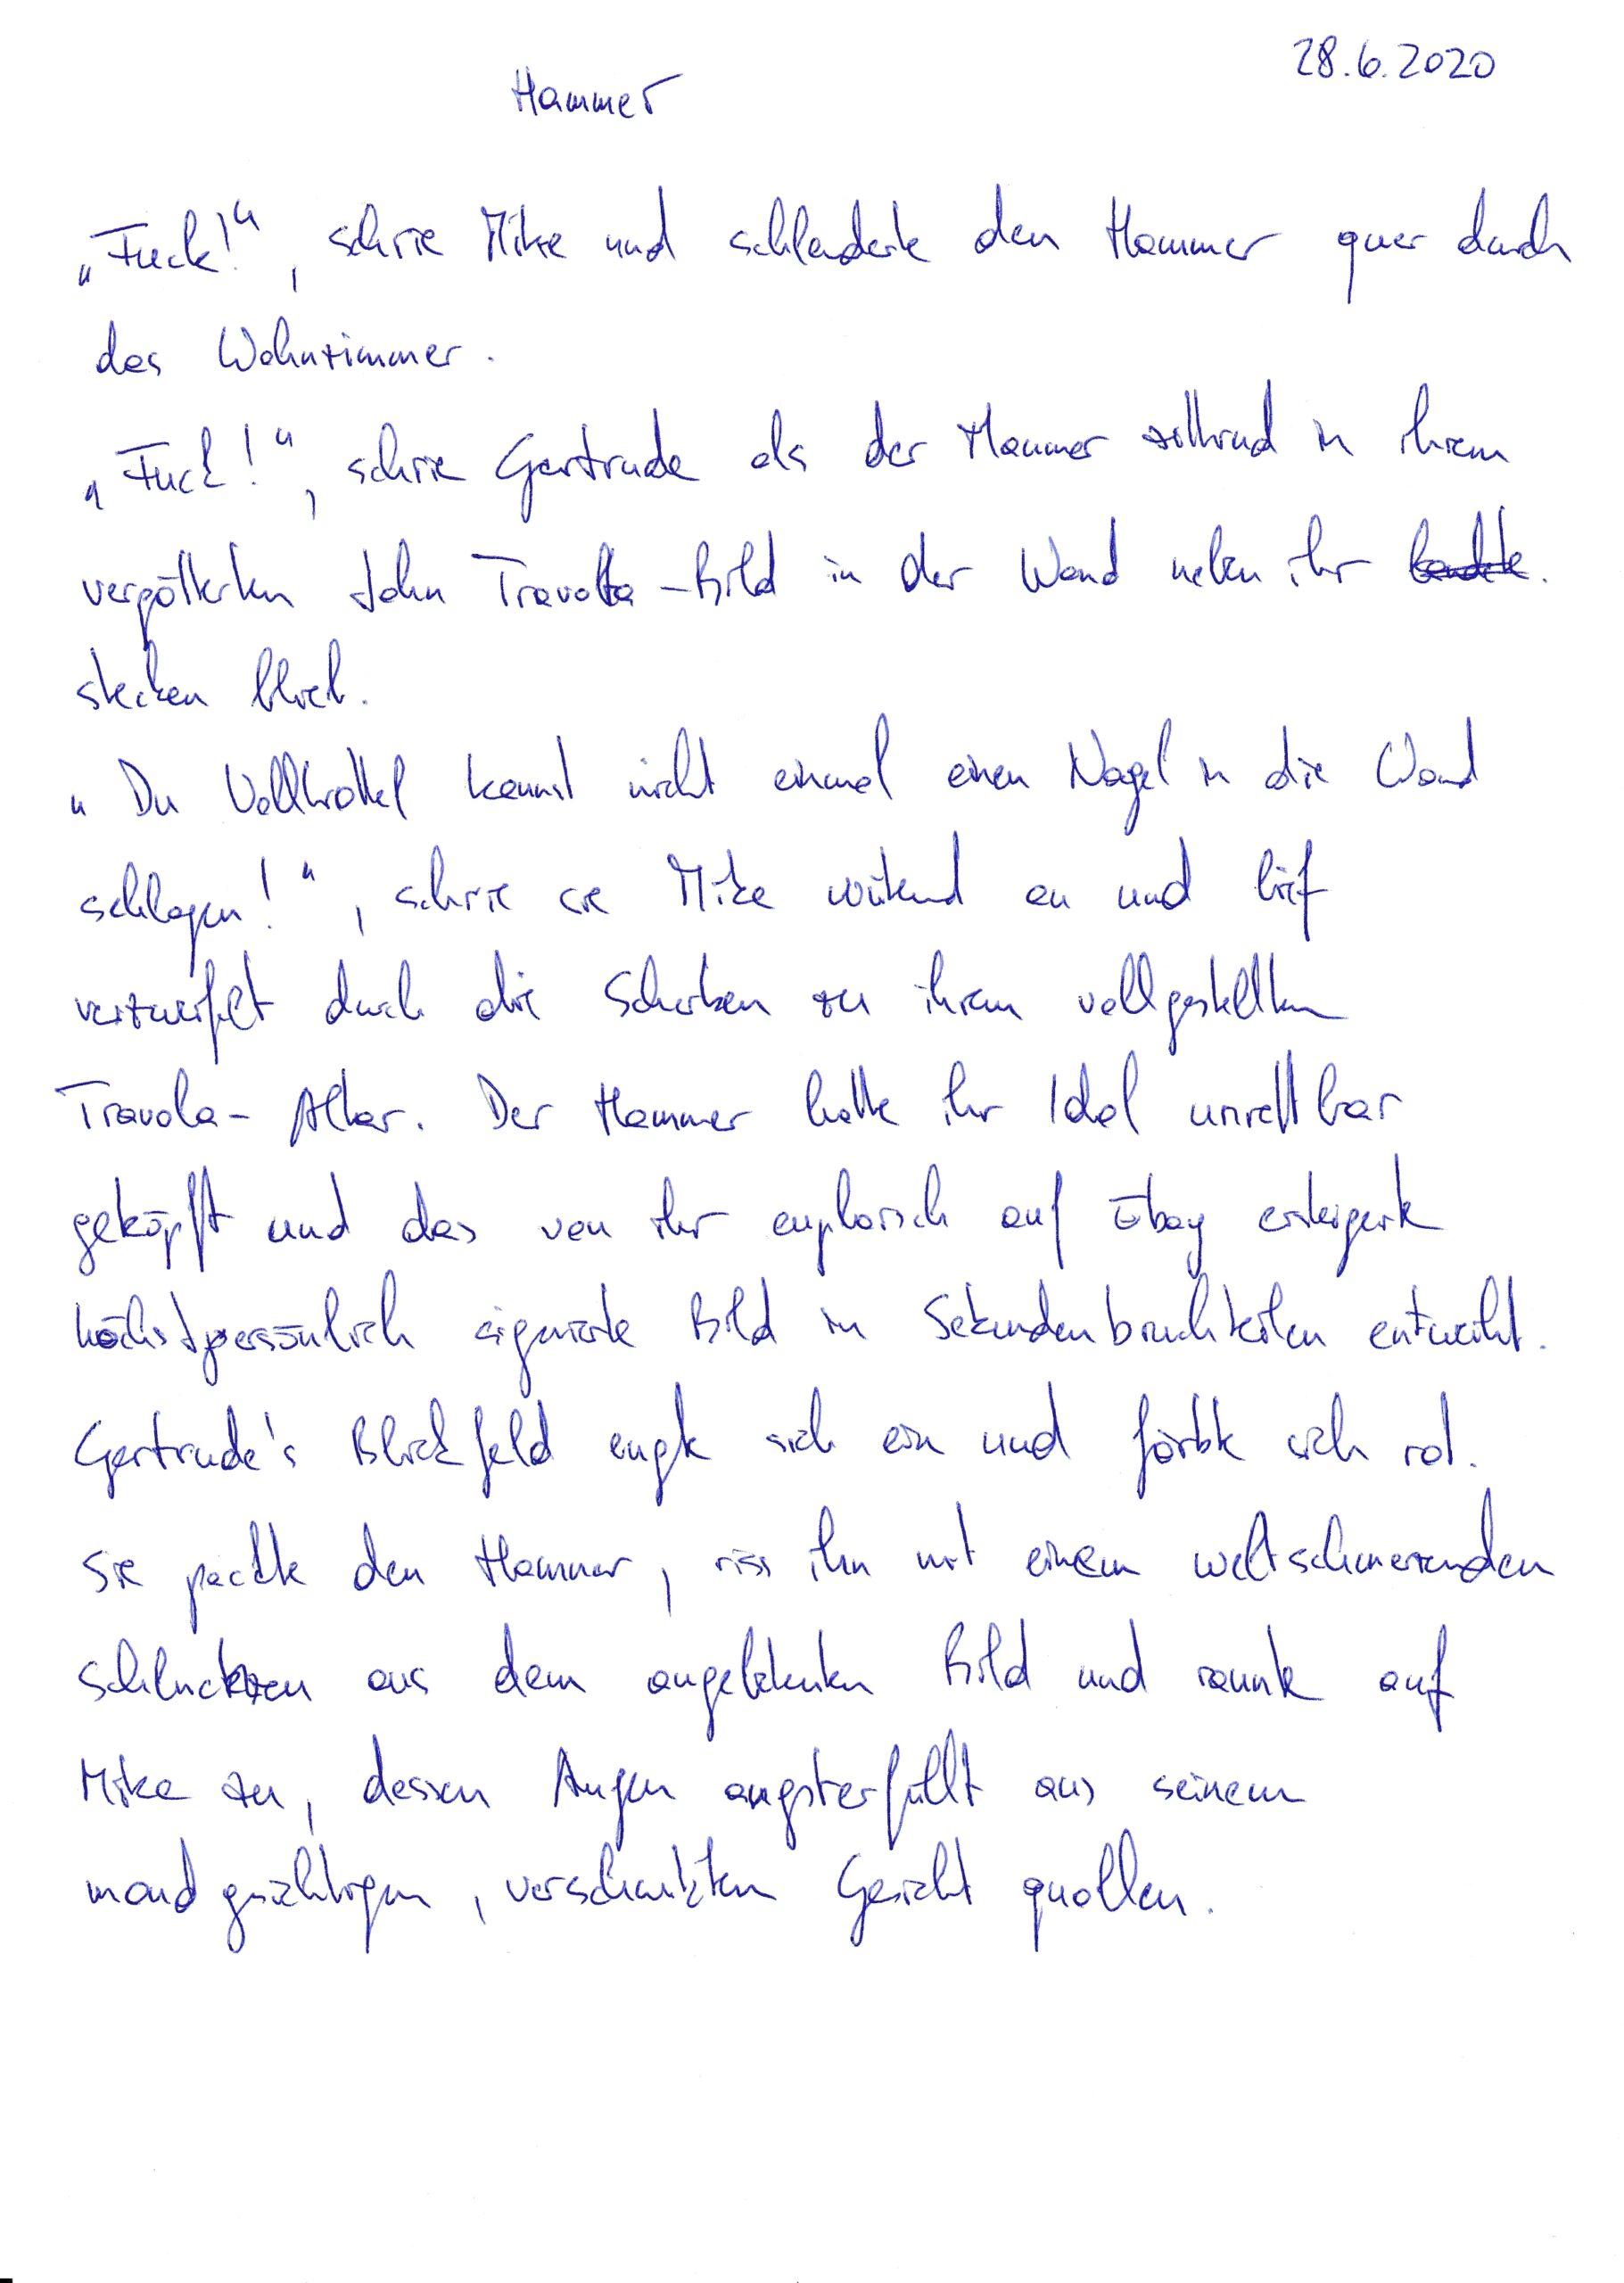 28.6.2020
Hammer
„Fuck!“, schrie Mike und schleuderte den Hammer quer durch
das Wohnzimmer.
„Fuck!“, schrie Gertrude als der Hammer zitternd in ihrem
vergötterten John Travolta-Bild in der Wand neben ihr landete.
stecken blieb.
„Du Volltrottel kannst nicht einmal einen Nagel in die Wand
schlagen!“, schrie sie Mike wütend an und lief
verzweifelt durch die Scherben zu ihrem vollgestellten
Travola-Altar. Der Hammer hatte ihr Idol unrettbar
geköpft und das von ihr euphorisch auf Ebay ersteigerte
höchstpersönlich signierte Bild in Sekundenbruchteilen entweiht.
Gertrude's Blickfeld engte sich ein und färbte sich rot.
Sie packte den Hammer, riss ihn mit einem weltschmerzenden
Schluckzen aus dem angebeteten Bild und rannte auf
Mike zu, dessen Augen angsterfüllt aus seinem
mondgesichtigen, verschwitzten Gesicht quollen.